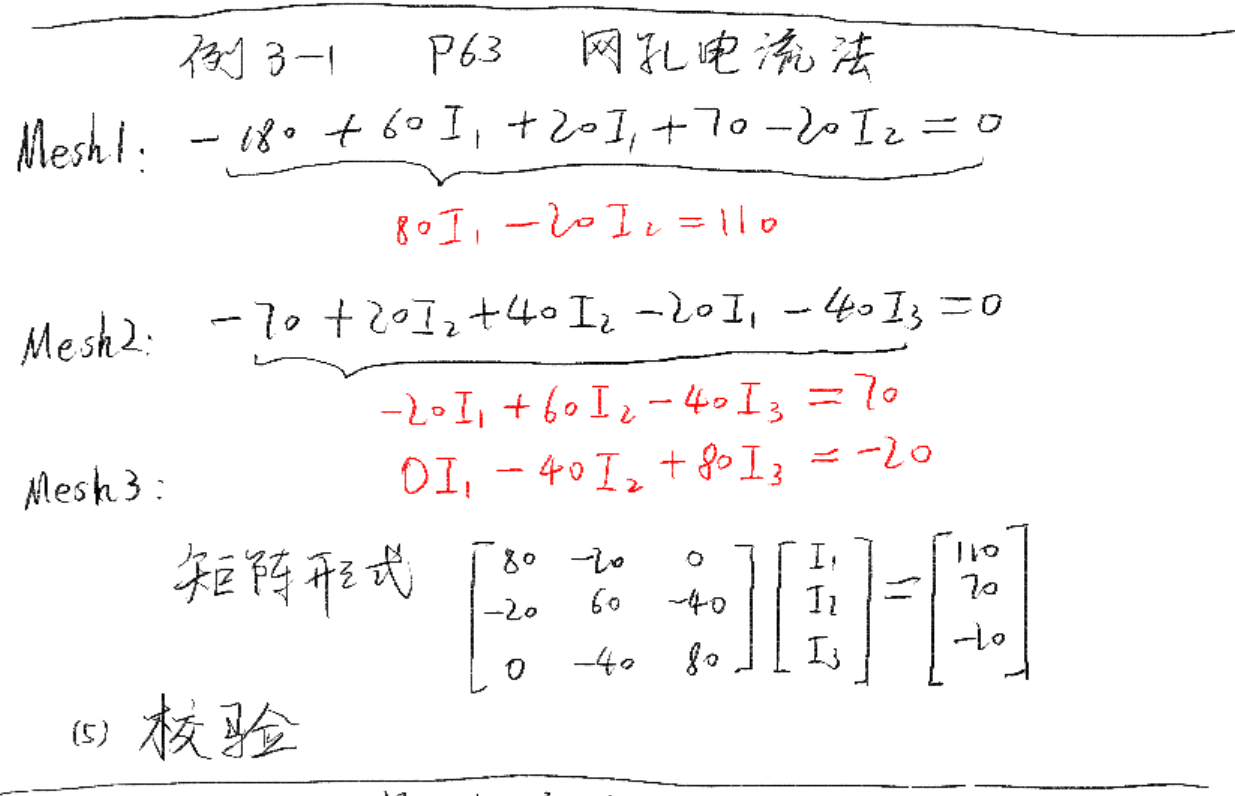 例3-1 P63 网孔电流法
Mesh1: -180 + 60I₁ + 20I₁ + 70 - 20I₂ = 0
80I₁ - 20I₂ = 110
Mesh2: -70 + 20I₂ + 40I₂ - 20I₁ - 40I₃ = 0
-20I₁ + 60I₂ - 40I₃ = 70
Mesh3: 0I₁ - 40I₂ + 80I₃ = -20
矩阵形式 [80 -20 0; -20 60 -40; 0 -40 80] [I₁; I₂; I₃] = [110; 70; -20]
(5) 校验